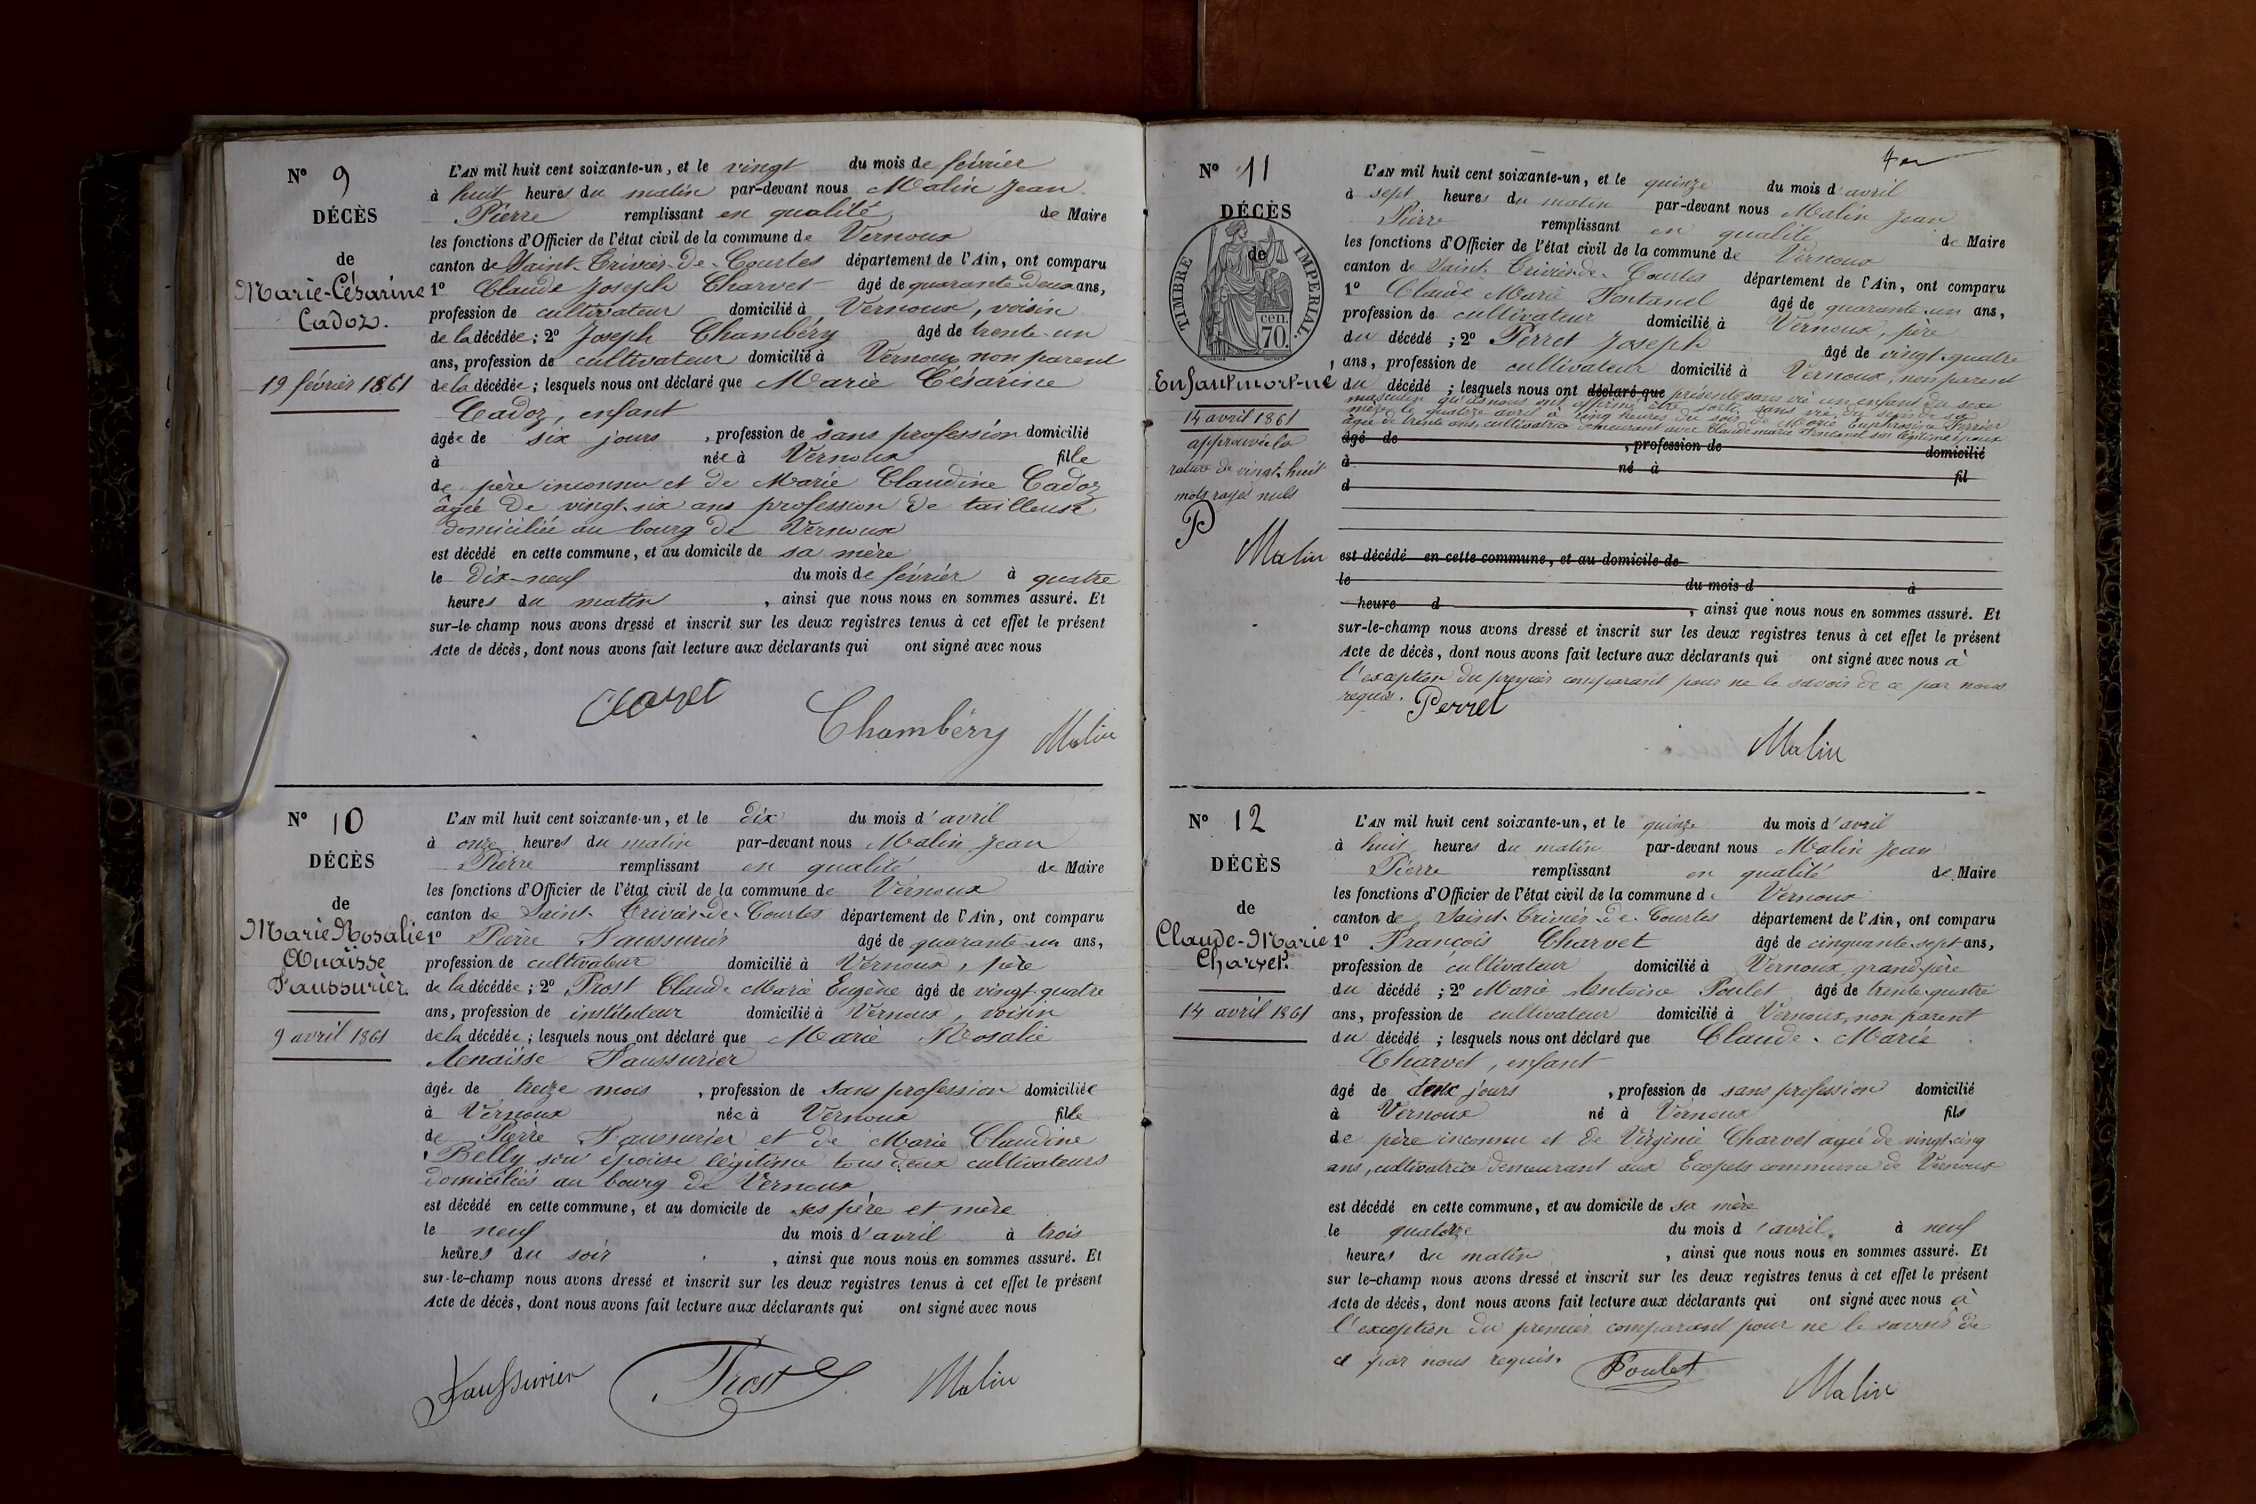 N° 9
DÉCÈS
de
Marie-Césarine
Cadoz.
19 février 1861
L'AN mil huit cent soixante-un, et le vingt du mois de février
à huit heures du matin par-devant nous Malin Jean
Pierre remplissant en qualité de Maire
les fonctions d'Officier de l'état civil de la commune de Vernoux
canton de Saint-Trivier-de-Courtes département de l'Ain, ont comparu
1° Claude Joseph Charvet âgé de quarante deux ans,
profession de cultivateur domicilié à Vernoux, voisin
de la décédée ; 2° Joseph Chambéry âgé de trente-un
ans, profession de cultivateur domicilié à Vernoux non parent
de la décédée ; lesquels nous ont déclaré que Marie Césarine
Cadoz, enfant
âgée de six jours , profession de sans profession domicilié
à née à Vernoux fille
de père inconnu et de Marie Claudine Cadoz
âgée de vingt-six ans profession de tailleuse
domiciliée au bourg de Vernoux
est décédé en cette commune, et au domicile de sa mère
le dix-neuf du mois de février à quatre
heures du matin , ainsi que nous nous en sommes assuré. Et
sur-le-champ nous avons dressé et inscrit sur les deux registres tenus à cet effet le présent
Acte de décès, dont nous avons fait lecture aux déclarants qui ont signé avec nous
Charvet
Chambéry Malin
N° 10
DÉCÈS
de
Marie Rosalie
Anaïsse
Faussurier.
9 avril 1861
L'AN mil huit cent soixante-un, et le dix du mois d'avril
à onze heures du matin par-devant nous Malin Jean
Pierre remplissant en qualité de Maire
les fonctions d'Officier de l'état civil de la commune de Vernoux
canton de Saint-Trivier-de-Courtes département de l'Ain, ont comparu
1° Pierre Faussurier âgé de quarante-un ans,
profession de cultivateur domicilié à Vernoux, père
de la décédée ; 2° Prost Claude Marie Eugène âgé de vingt-quatre
ans, profession de instituteur domicilié à Vernoux, voisin
de la décédée ; lesquels nous ont déclaré que Marie Rosalie
Anaïsse Faussurier
âgée de treize mois , profession de sans profession domiciliée
à Vernoux née à Vernoux fille
de Pierre Faussurier et de Marie Claudine
Belly son épouse légitime tous deux cultivateurs
domiciliés au bourg de Vernoux
est décédé en cette commune, et au domicile de ses père et mère
le neuf du mois d'avril à trois
heures du soir , ainsi que nous nous en sommes assuré. Et
sur-le-champ nous avons dressé et inscrit sur les deux registres tenus à cet effet le présent
Acte de décès, dont nous avons fait lecture aux déclarants qui ont signé avec nous
Faussurier Prost Malin
N° 11
DÉCÈS
de
TIMBRE IMPÉRIAL.
cen.
70.
Enfant mort-né
14 avril 1861
approuvé la
rature de vingt-huit
mots rayés nuls
P
Malin
L'AN mil huit cent soixante-un, et le quinze du mois d'avril
à sept heures du matin par-devant nous Malin Jean
Pierre remplissant en qualité de Maire
les fonctions d'Officier de l'état civil de la commune de Vernoux
canton de Saint-Trivier-de-Courtes département de l'Ain, ont comparu
1° Claude Marie Fontanel âgé de quarante-un ans,
profession de cultivateur domicilié à Vernoux, père
du décédé ; 2° Perret Joseph âgé de vingt-quatre
ans, profession de cultivateur domicilié à Vernoux, non parent
du décédé ; lesquels nous ont déclaré que présenté sans vie un enfant du sexe
masculin qu'ils nous ont affirmé être sorti sans vie du sein de sa
mère le quatorze avril à cinq heures du soir de Marie Euphrosine Perrier
âgée de trente ans, cultivatrice demeurant avec Claude Marie Fontanel son légitime époux
âgé de , profession de domicilié
à né à fil
d
est décédé en cette commune, et au domicile de
le du mois d à
heure d , ainsi que nous nous en sommes assuré. Et
sur-le-champ nous avons dressé et inscrit sur les deux registres tenus à cet effet le présent
Acte de décès, dont nous avons fait lecture aux déclarants qui ont signé avec nous à
l'exception du premier comparant pour ne le savoir de ce par nous
requis. Perret
Malin
N° 12
DÉCÈS
de
Claude-Marie
Charvet.
14 avril 1861
L'AN mil huit cent soixante-un, et le quinze du mois d'avril
à huit heures du matin par-devant nous Malin Jean
Pierre remplissant en qualité de Maire
les fonctions d'Officier de l'état civil de la commune de Vernoux
canton de Saint-Trivier-de-Courtes département de l'Ain, ont comparu
1° François Charvet âgé de cinquante-sept ans,
profession de cultivateur domicilié à Vernoux, grand-père
du décédé ; 2° Marie Antoine Poulet âgé de trente-quatre
ans, profession de cultivateur domicilié à Vernoux, non parent
du décédé ; lesquels nous ont déclaré que Claude-Marie
Charvet, enfant
âgé de deux jours , profession de sans profession domicilié
à Vernoux né à Vernoux fils
de père inconnu et de Virginie Charvet agée de vingt-cinq
ans, cultivatrice demeurant aux Ecopets commune de Vernoux
est décédé en cette commune, et au domicile de sa mère
le quatorze du mois d'avril, à neuf
heures du matin , ainsi que nous nous en sommes assuré. Et
sur le-champ nous avons dressé et inscrit sur les deux registres tenus à cet effet le présent
Acte de décès, dont nous avons fait lecture aux déclarants qui ont signé avec nous à
l'exception du premier comparant pour ne le savoir de
ce par nous requis. Poulet Malin